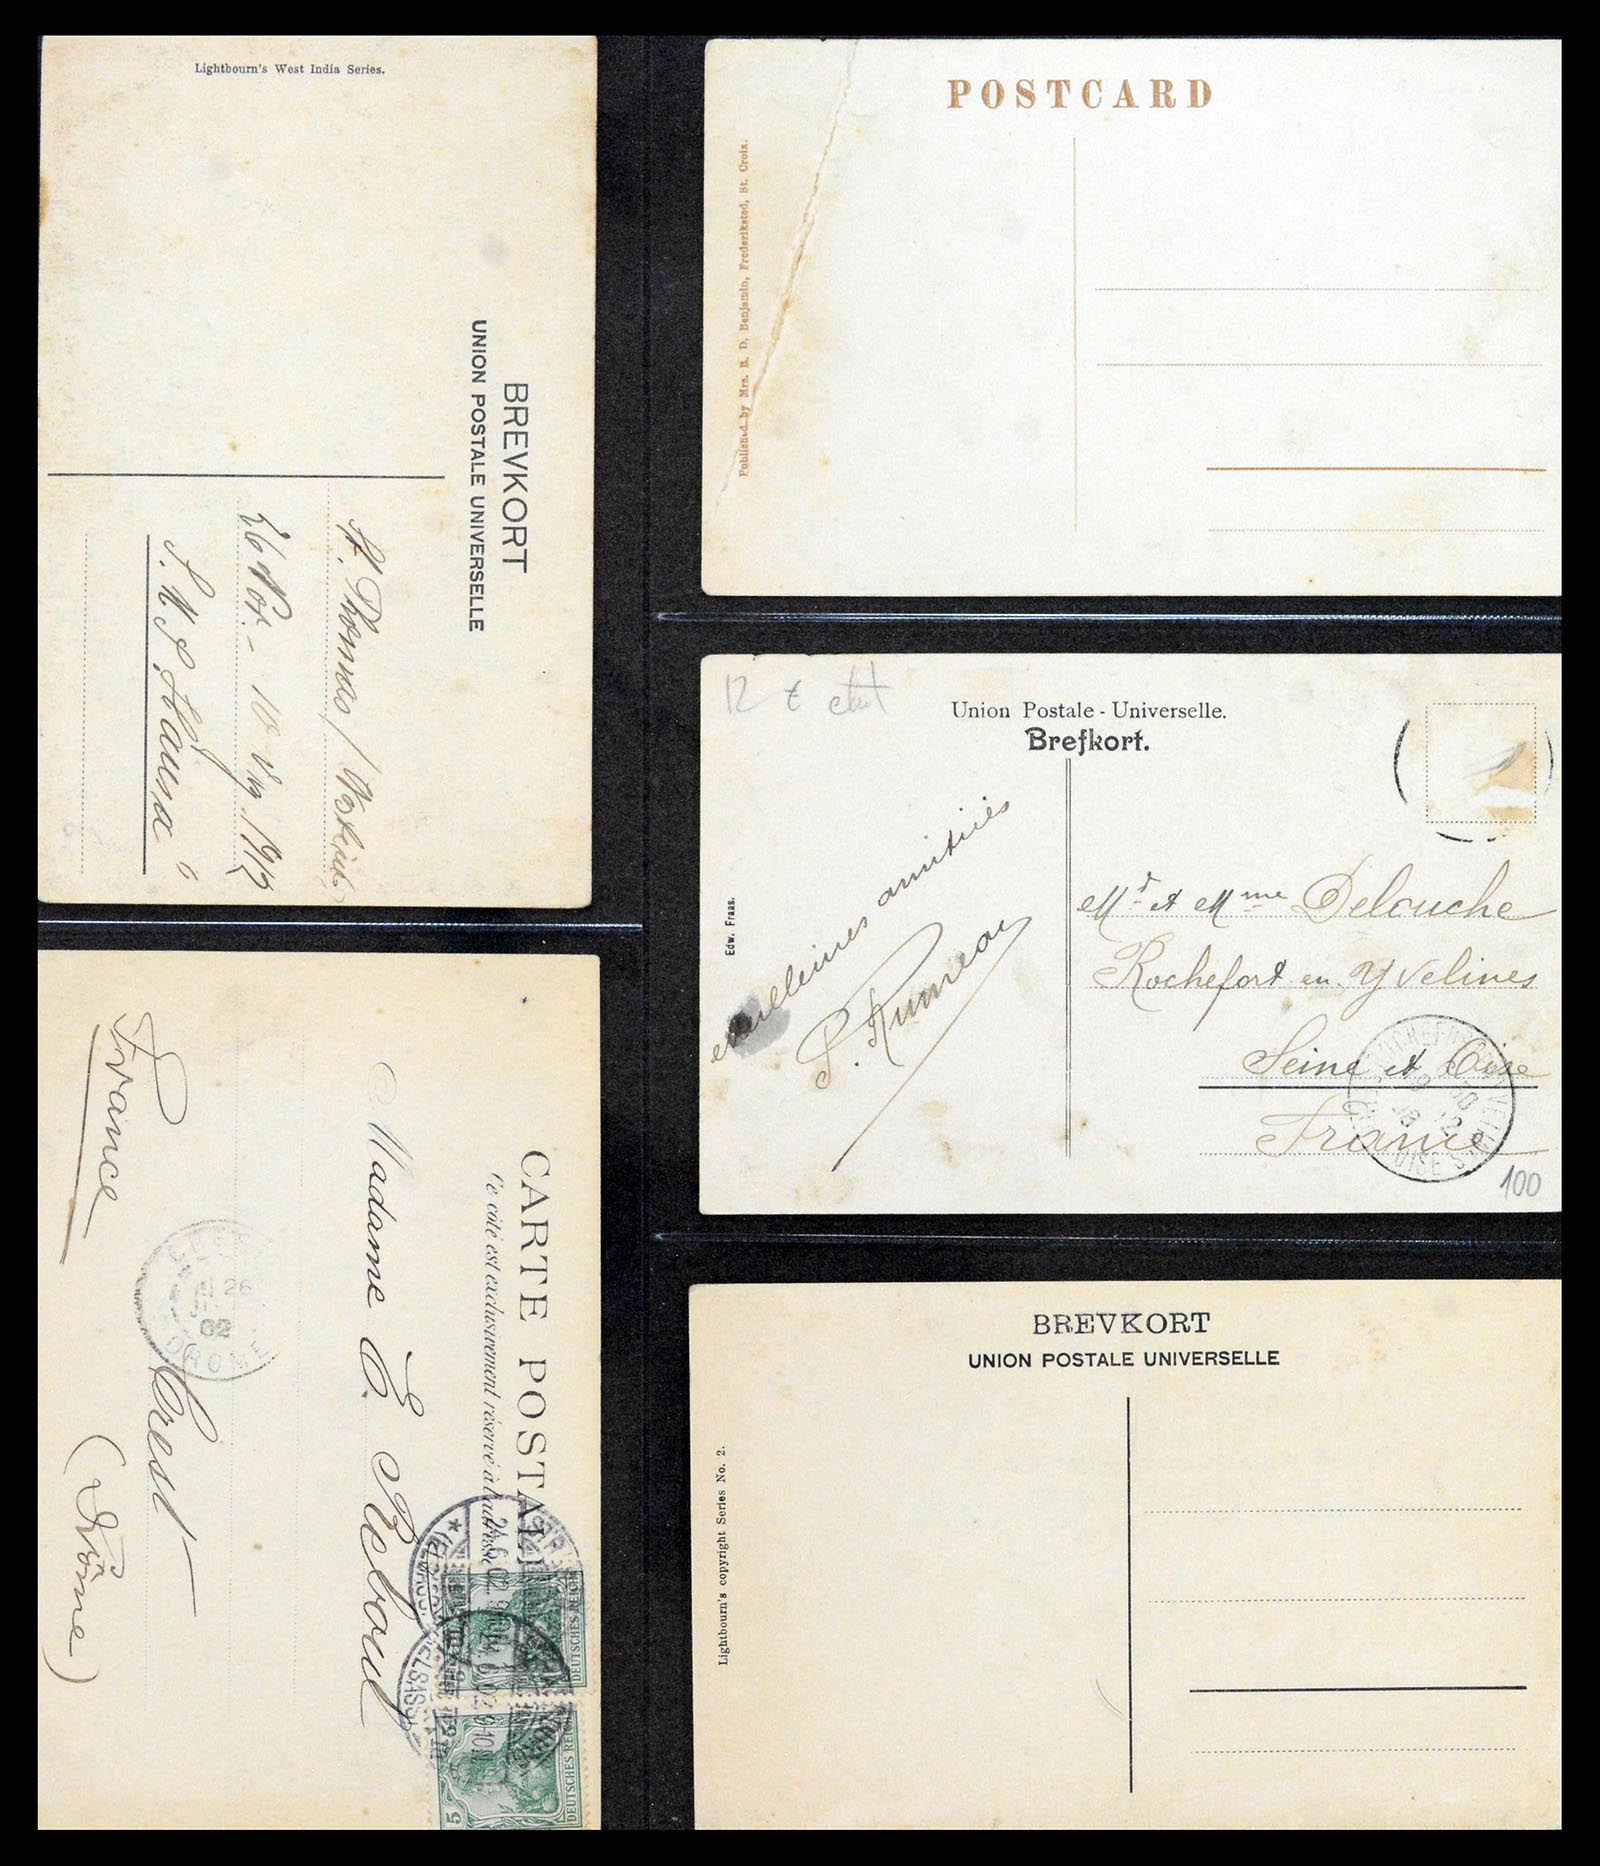 Lightbourn's West India Series.
BREVKORT
UNION POSTALE UNIVERSELLE
St. Thomas /
26 Nov. - 10 1912
S.M.S.
POSTCARD
Published by Mrs. B. D. Benjamin, Frederiksted, St. Croix.
12 €
Union Postale - Universelle.
Brefkort.
Edw. Fraas.
meilleures amitiés
Mr et Mme Delouche
Rochefort en Yvelines
Seine et Oise
France
100
CARTE POSTALE
Ce côté est exclusivement réservé à l'adresse
Madame E. Reboul
Crest
(Drôme)
France
26
02
DROME
24.6.02. 9-10
DEUTSCHES REICH
DEUTSCHES REICH
5
BREVKORT
UNION POSTALE UNIVERSELLE
Lightbourn's copyright Series No. 2.